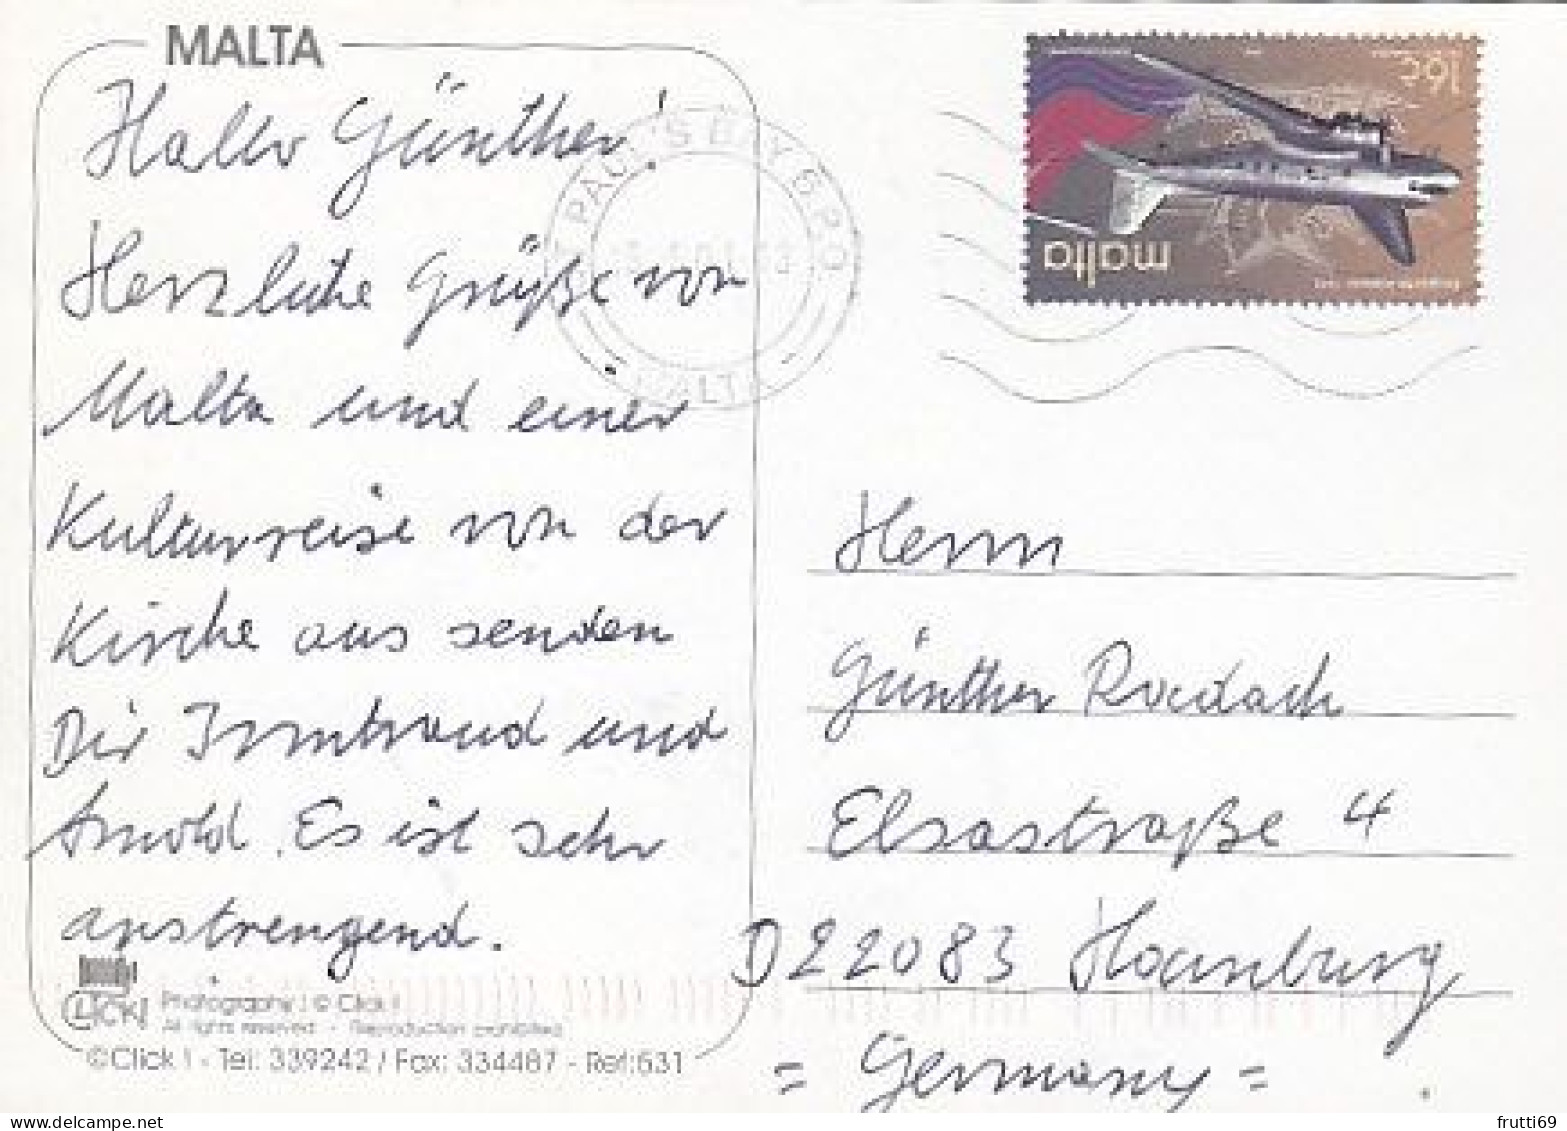 MALTA
Hallo Günther!
Herzliche Grüße von
Malta und einer
Kulturreise von der
Kirche aus senden
Dir Irmtraud und
Arnold. Es ist sehr
anstrengend.
CLICK!
Photography: © Click!
All rights reserved - Reproduction prohibited
©Click! - Tel: 339242 / Fax: 334487 - Ref:531
PAUL'S BAY 620
MALTA
16c
malta
Herrn
Günther Roedach
Elsastraße 4
D22083 Hamburg
= Germany =
frutti69